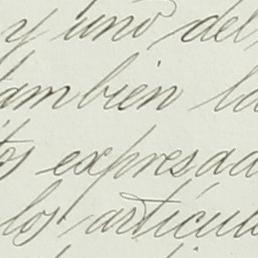 y uno del
tambien la
os expresad
los artícul